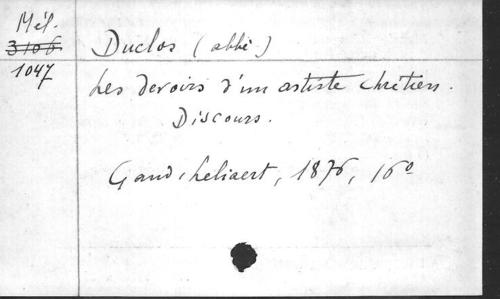 Mél.
3106
1047
Duclos (abbé)
Les devoirs d'un artiste chrétien.
Discours.
Gand, Leliaert, 1876, 16°